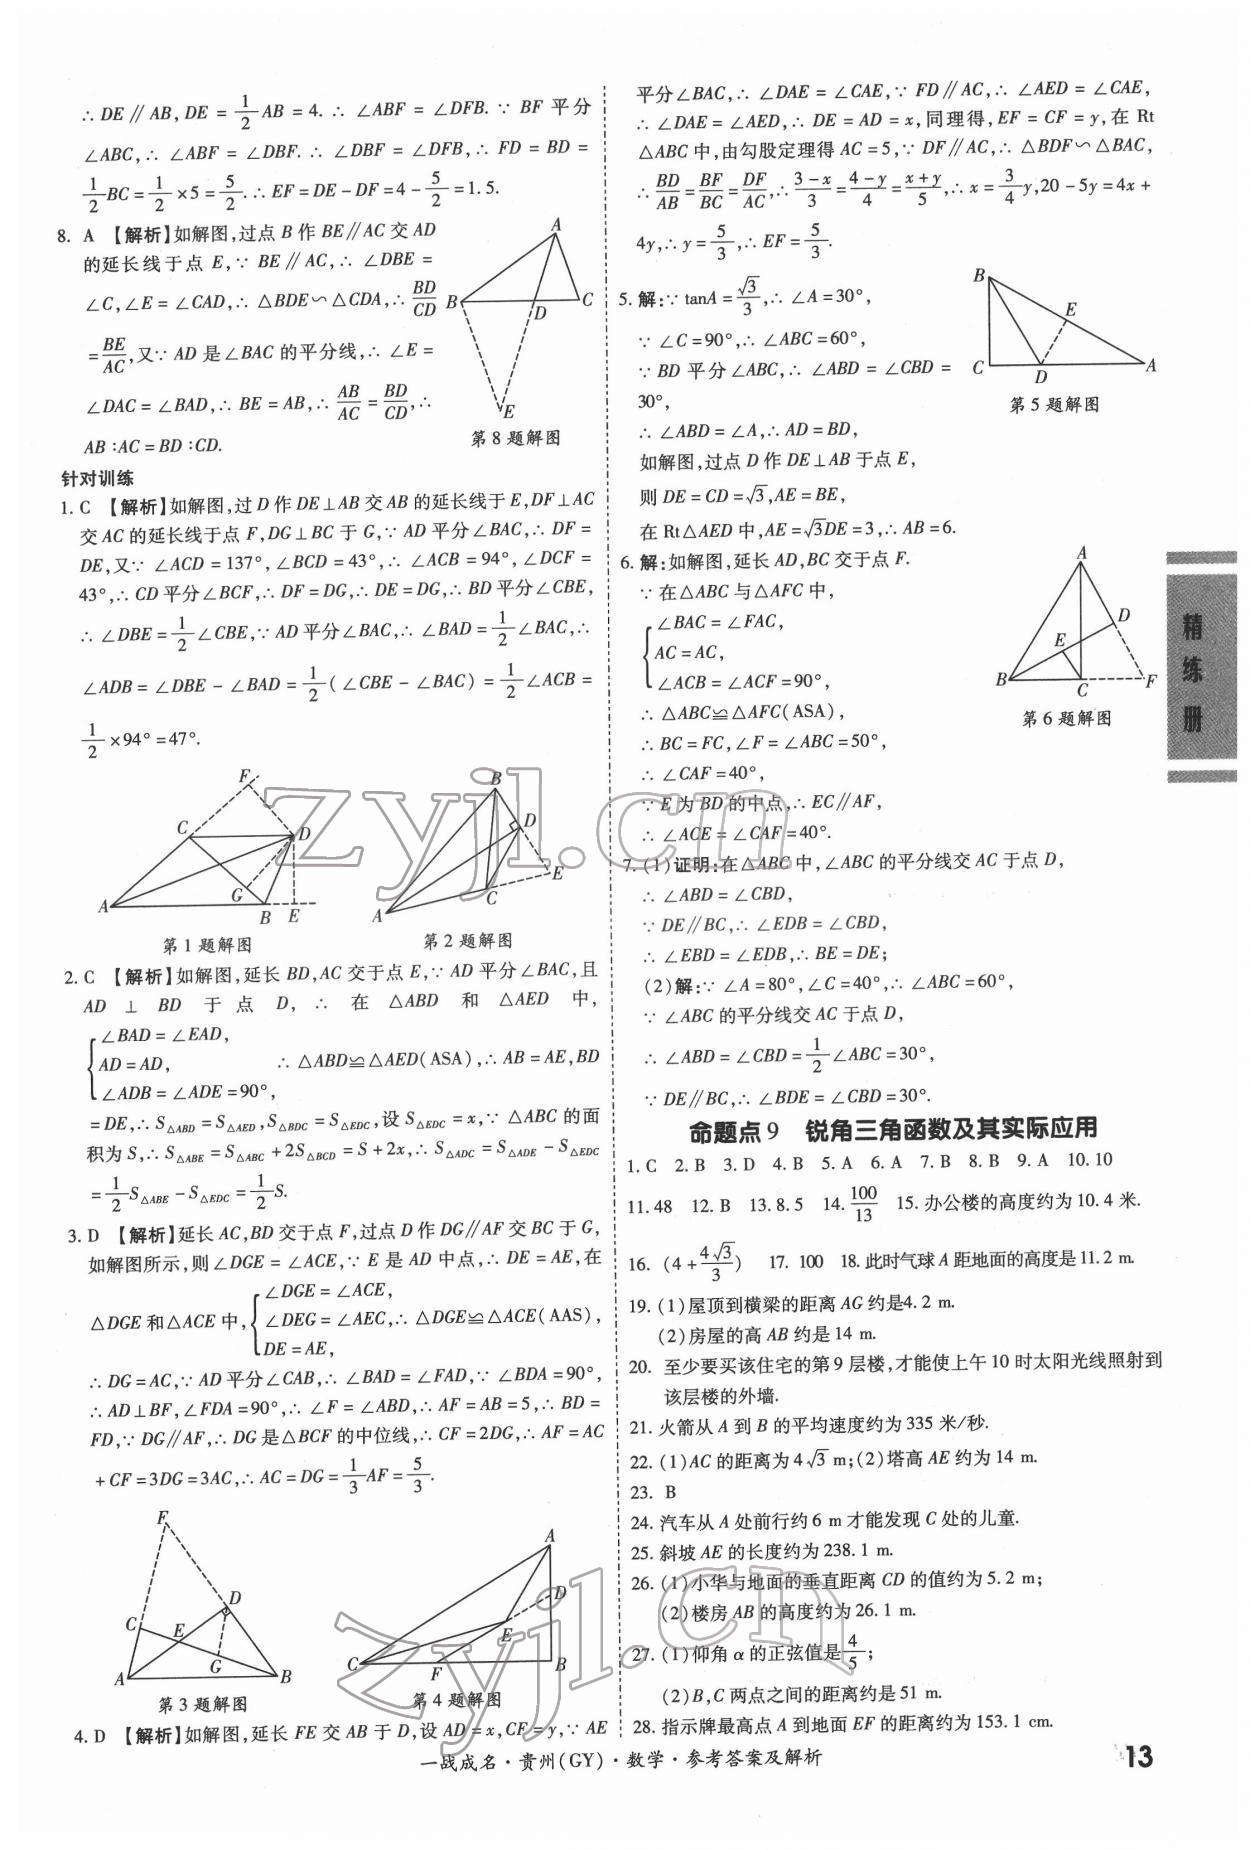 ∴ DE∥AB,DE=1/2AB=4.∴ ∠ABF=∠DFB.∵ BF平分
∠ABC,∴ ∠ABF=∠DBF.∴ ∠DBF=∠DFB,∴ FD=BD=
1/2BC=1/2×5=5/2.∴ EF=DE-DF=4-5/2=1.5.
8. A 【解析】如解图,过点B作BE∥AC交AD
的延长线于点E,∵ BE∥AC,∴ ∠DBE=
∠C,∠E=∠CAD,∴ △BDE∽△CDA,∴ BD/CD
=BE/AC,又∵ AD是∠BAC的平分线,∴ ∠E=
∠DAC=∠BAD,∴ BE=AB,∴ AB/AC=BD/CD,∴
AB∶AC=BD∶CD.
A
B
D
C
E
第8题解图
针对训练
1. C 【解析】如解图,过D作DE⊥AB交AB的延长线于E,DF⊥AC
交AC的延长线于点F,DG⊥BC于G,∵ AD平分∠BAC,∴ DF=
DE,又∵ ∠ACD=137°,∠BCD=43°,∴ ∠ACB=94°,∠DCF=
43°,∴ CD平分∠BCF,∴ DF=DG,∴ DE=DG,∴ BD平分∠CBE,
∴ ∠DBE=1/2∠CBE,∵ AD平分∠BAC,∴ ∠BAD=1/2∠BAC,∴
∠ADB=∠DBE-∠BAD=1/2(∠CBE-∠BAC)=1/2∠ACB=
1/2×94°=47°.
F
C
D
G
A
B
E
第1题解图
B
D
E
C
A
第2题解图
2. C 【解析】如解图,延长BD,AC交于点E,∵ AD平分∠BAC,且
AD⊥BD于点D,∴在△ABD和△AED中,
∠BAD=∠EAD,
AD=AD, ∴ △ABD≌△AED(ASA),∴ AB=AE,BD
∠ADB=∠ADE=90°,
=DE,∴ S△ABD=S△AED,S△BDC=S△EDC,设S△EDC=x,∵ △ABC的面
积为S,∴ S△ABE=S△ABC+2S△BCD=S+2x,∴ S△ADC=S△ADE-S△EDC
=1/2S△ABE-S△EDC=1/2S.
3. D 【解析】延长AC,BD交于点F,过点D作DG∥AF交BC于G,
如解图所示,则∠DGE=∠ACE,∵ E是AD中点,∴ DE=AE,在
∠DGE=∠ACE,
△DGE和△ACE中, ∠DEG=∠AEC,∴ △DGE≌△ACE(AAS),
DE=AE,
∴ DG=AC,∵ AD平分∠CAB,∴ ∠BAD=∠FAD,∵ ∠BDA=90°,
∴ AD⊥BF,∠FDA=90°,∴ ∠F=∠ABD,∴ AF=AB=5,∴ BD=
FD,∵ DG∥AF,∴ DG是△BCF的中位线,∴ CF=2DG,∴ AF=AC
+CF=3DG=3AC,∴ AC=DG=1/3AF=5/3.
F
C
E
D
G
A
B
第3题解图
A
D
E
C
F
B
第4题解图
4. D 【解析】如解图,延长FE交AB于D,设AD=x,CF=y,∵ AE
平分∠BAC,∴ ∠DAE=∠CAE,∵ FD∥AC,∴ ∠AED=∠CAE,
∴ ∠DAE=∠AED,∴ DE=AD=x,同理得,EF=CF=y,在Rt
△ABC中,由勾股定理得AC=5,∵ DF∥AC,∴ △BDF∽△BAC,
∴ BD/AB=BF/BC=DF/AC,∴ (3-x)/3=(4-y)/4=(x+y)/5,∴ x=3/4y,20-5y=4x+
4y,∴ y=5/3,∴ EF=5/3.
5. 解:∵ tanA=√3/3,∴ ∠A=30°,
∵ ∠C=90°,∴ ∠ABC=60°,
∵ BD平分∠ABC,∴ ∠ABD=∠CBD=
30°,
∴ ∠ABD=∠A,∴ AD=BD,
如解图,过点D作DE⊥AB于点E,
则DE=CD=√3,AE=BE,
在Rt△AED中,AE=√3DE=3,∴ AB=6.
B
E
C
D
A
第5题解图
6. 解:如解图,延长AD,BC交于点F.
∵ 在△ABC与△AFC中,
∠BAC=∠FAC,
AC=AC,
∠ACB=∠ACF=90°,
∴ △ABC≌△AFC(ASA),
∴ BC=FC,∠F=∠ABC=50°,
∴ ∠CAF=40°,
∵ E为BD的中点,∴ EC∥AF,
∴ ∠ACE=∠CAF=40°.
A
D
E
B
C
F
第6题解图
7. (1)证明:在△ABC中,∠ABC的平分线交AC于点D,
∴ ∠ABD=∠CBD,
∵ DE∥BC,∴ ∠EDB=∠CBD,
∴ ∠EBD=∠EDB,∴ BE=DE;
(2)解:∵ ∠A=80°,∠C=40°,∴ ∠ABC=60°,
∵ ∠ABC的平分线交AC于点D,
∴ ∠ABD=∠CBD=1/2∠ABC=30°,
∵ DE∥BC,∴ ∠BDE=∠CBD=30°.
命题点9 锐角三角函数及其实际应用
1. C 2. B 3. D 4. B 5. A 6. A 7. B 8. B 9. A 10. 10
11. 48 12. B 13. 8.5 14. 100/13 15. 办公楼的高度约为10.4米.
16. (4+4√3/3) 17. 100 18. 此时气球A距地面的高度是11.2 m.
19. (1)屋顶到横梁的距离AG约是4.2 m.
(2)房屋的高AB约是14 m.
20. 至少要买该住宅的第9层楼,才能使上午10时太阳光线照射到
该层楼的外墙.
21. 火箭从A到B的平均速度约为335米/秒.
22. (1)AC的距离为4√3 m;(2)塔高AE约为14 m.
23. B
24. 汽车从A处前行约6 m才能发现C处的儿童.
25. 斜坡AE的长度约为238.1 m.
26. (1)小华与地面的垂直距离CD的值约为5.2 m;
(2)楼房AB的高度约为26.1 m.
27. (1)仰角α的正弦值是4/5;
(2)B,C两点之间的距离约是51 m.
28. 指示牌最高点A到地面EF的距离约为153.1 cm.
精练册
zyjl.cn
zyjl.cn
一战成名·贵州(GY)·数学·参考答案及解析
13